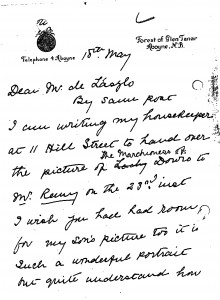 Telephone 4 Aboyne
Forest of Glen Tanar
Aboyne, N.B.
18th May
Dear Mr. de László
By same post
I am writing my housekeeper
at 11 Hill Street to hand over
the picture of Lady Downs to
The Marchioness of
Mr on the 23rd inst
I wish you had had room
for my son's picture too it is
such a wonderful portrait
but quite understand how